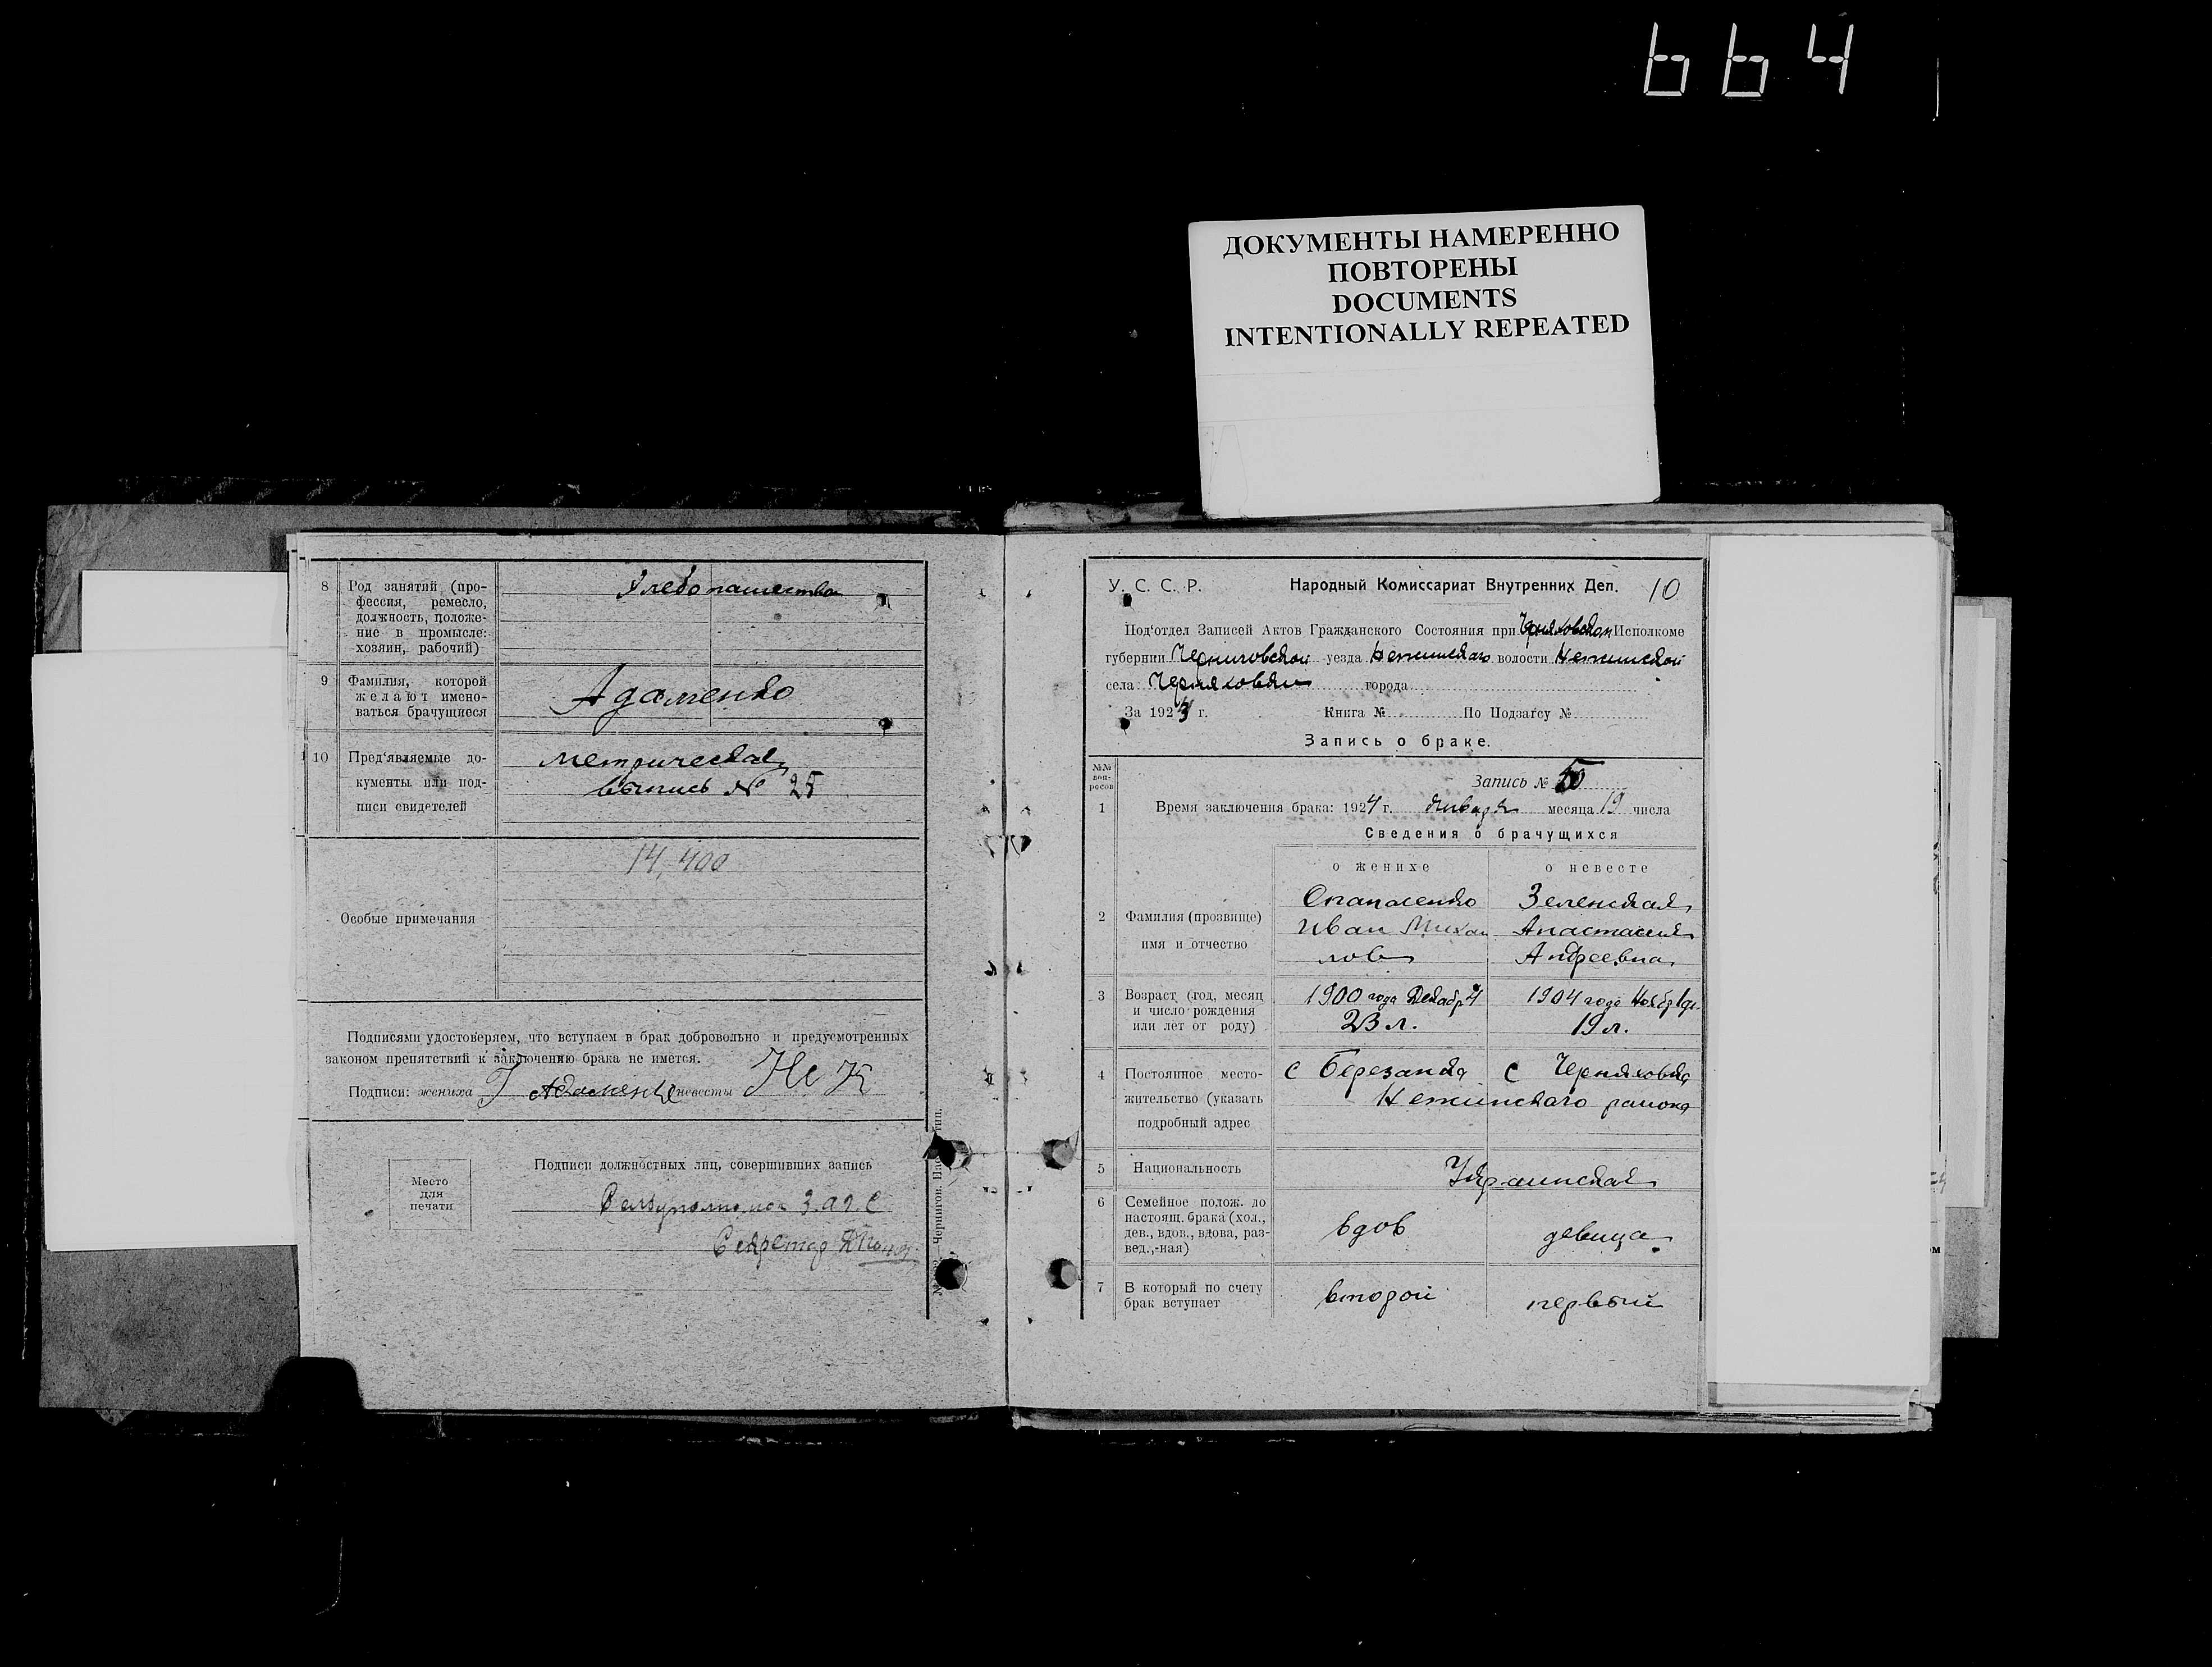 664
ДОКУМЕНТЫ НАМЕРЕННО
ПОВТОРЕНЫ
DOCUMENTS
INTENTIONALLY REPEATED
8 Род занятий (про-
фессия, ремесло,
должность, положе-
ние в промысле:
хозяин, рабочий)
Хлебопашество
9 Фамилия, которой
желают имено-
ваться брачущиеся
Адаменко
10 Пред'являемые до-
кументы или под-
писи свидетелей
метрическая
выпись № 25
Особые примечания
14,400
Подписями удостоверяем, что вступаем в брак добровольно и предусмотренных
законом препятствий к заключению брака не имется.
Подписи: жениха Адаменко невесты
Место
для
печати
Подписи должностных лиц, совершивших запись
З.А.Г.С
Секретар
У. С. С. Р. Народный Комиссариат Внутренних Дел. 10
Под'отдел Записей Актов Гражданского Состояния при Черняховском Исполкоме
губернии Черниговской уезда Нежинского волости Нежинской
села Черняховки города
За 1924 г. Книга № По Подзагсу №
Запись о браке.
№№
воп-
росов
Запись № 50
1 Время заключения брака: 1924 г. Января месяца 19 числа
Сведения о брачущихся
о женихе о невесте
2 Фамилия (прозвище)
имя и отчество
Иван Михаи
лов
Зеленская
Анастасия
Андреевна
3 Возраст (год, месяц
и число рождения
или лет от роду)
1900 года Декабр 4
23 л.
1904 года Ноябр 1 дн.
19 л.
4 Постоянное место-
жительство (указать
подробный адрес
с Березанка с Черняховка
Нежинского района
5 Национальность
Украинская
6 Семейное полож. до
настоящ. брака (хол.,
дев., вдов., вдова, раз-
вед.,-ная)
вдов девица
7 В который по счету
брак вступает
второй первый